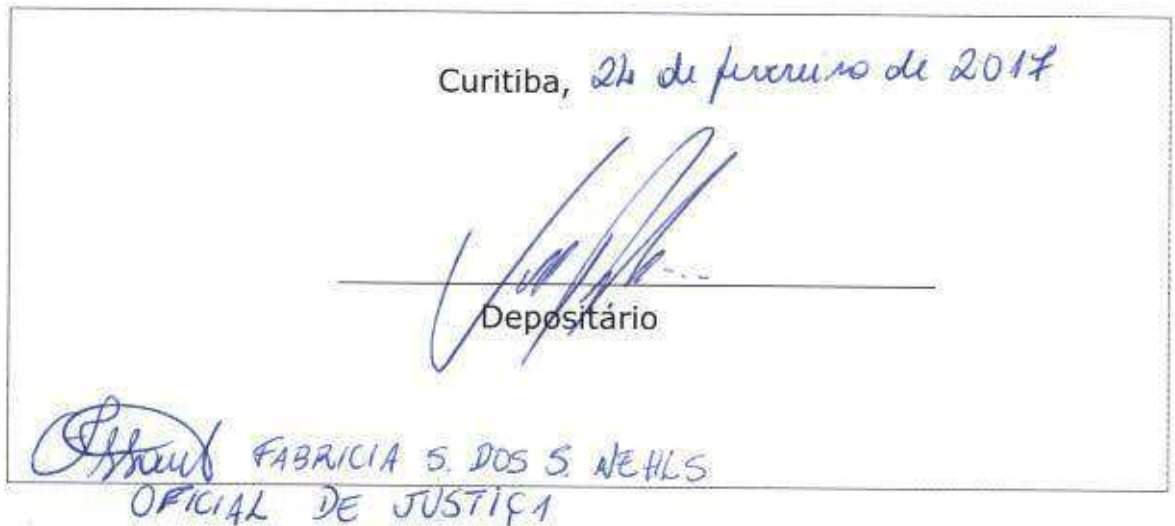 Curitiba, 24 de fevereiro de 2017
Depositário
FABRICIA S. DOS S. NEHLS
OFICIAL DE JUSTIÇA